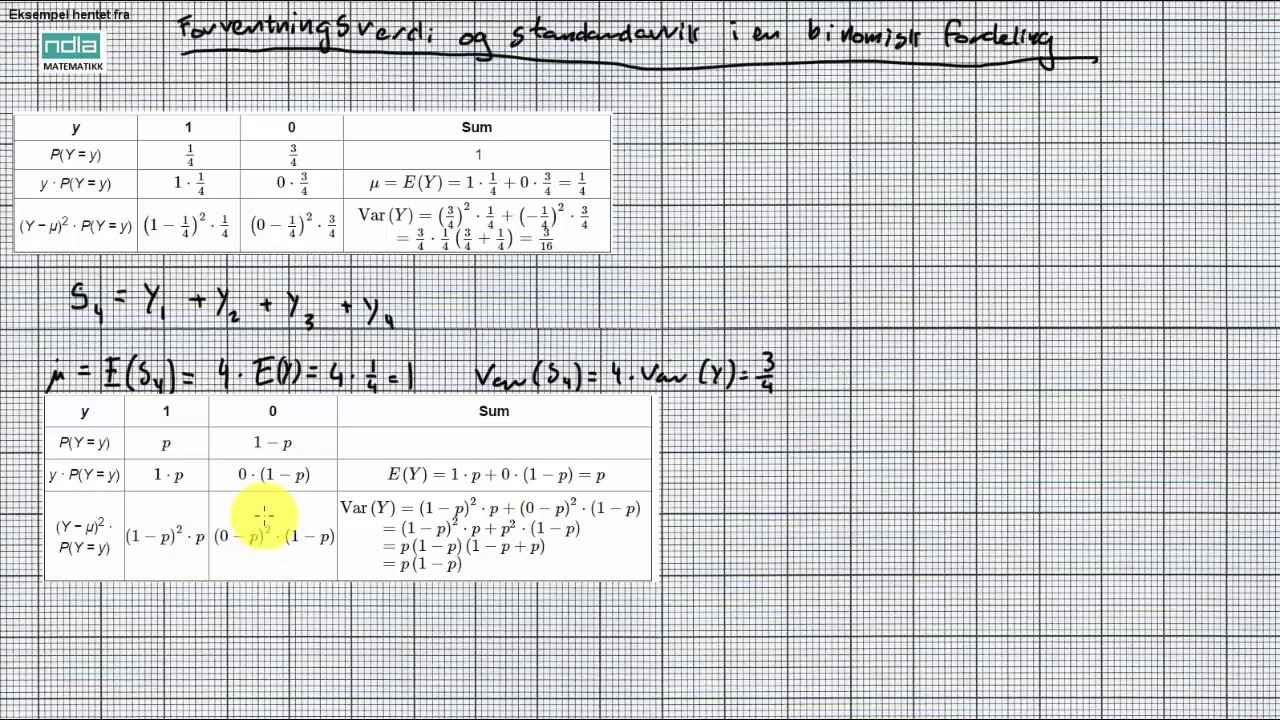 Eksempel hentet fra
ndla
MATEMATIKK
Forventningsverdi og standardavvik i en binomisk fordeling
y 1 0 Sum
P(Y = y) 1/4 3/4 1
y · P(Y = y) 1 · 1/4 0 · 3/4 μ = E(Y) = 1 · 1/4 + 0 · 3/4 = 1/4
(Y − μ)² · P(Y = y) (1 − 1/4)² · 1/4 (0 − 1/4)² · 3/4 Var (Y) = (3/4)² · 1/4 + (−1/4)² · 3/4
= 3/4 · 1/4 (3/4 + 1/4) = 3/16
S₄ = Y₁ + Y₂ + Y₃ + Y₄
μ = E(S₄) = 4 · E(Y) = 4 · 1/4 = 1 Var (S₄) = 4 · Var (Y) = 3/4
y 1 0 Sum
P(Y = y) p 1 − p
y · P(Y = y) 1 · p 0 · (1 − p) E(Y) = 1 · p + 0 · (1 − p) = p
(Y − μ)² · P(Y = y) (1 − p)² · p (0 − p)² · (1 − p) Var (Y) = (1 − p)² · p + (0 − p)² · (1 − p)
= (1 − p)² · p + p² · (1 − p)
= p (1 − p) (1 − p + p)
= p (1 − p)